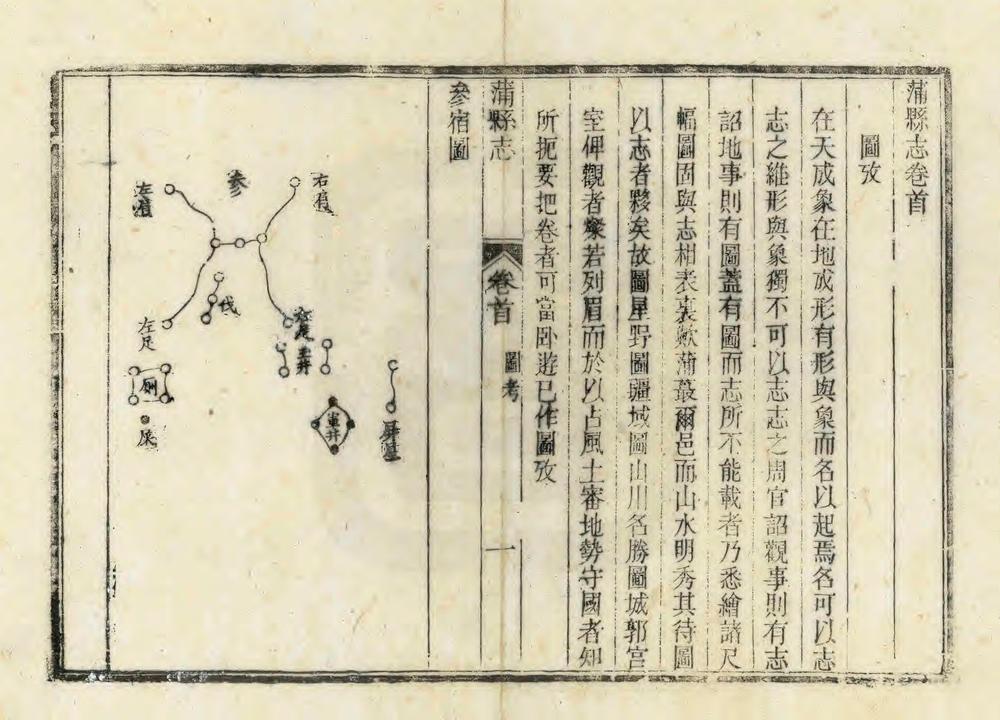 蒲縣志卷首
圖攷
在天成象在地成形有形與象而名以起焉名可以志
志之維形與象獨不可以志志之周官詔觀事則有志
詔地事則有圖蓋有圖而志所不能載者乃悉繪諸尺
幅圖固與志相表裏歟蒲蕞爾邑而山水明秀其待圖
以志者夥矣故圖星野圖疆域圖山川名勝圖城郭宮
室俾觀者燦若列眉而於以占風土審地勢守國者知
所扼要把卷者可當臥遊已作圖攷
蒲縣志
卷首
圖考
一
參宿圖
右肩
參
左肩
伐
右足
左足
玉井
軍井
屏星
厠
屎